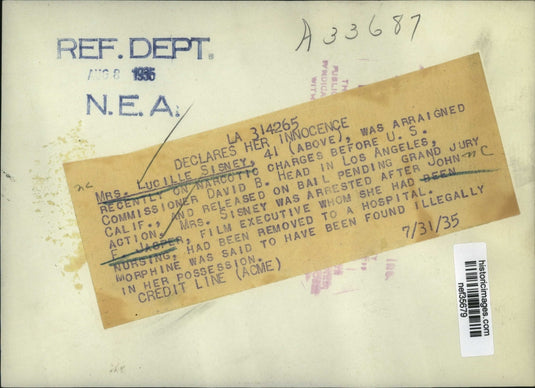 A33687
REF. DEPT.
AUG 8 1935
N.E.A.
LA 314265
DECLARES HER INNOCENCE
MRS. LUCILLE SISNEY, 41 (ABOVE), WAS ARRAIGNED
RECENTLY ON NARCOTIC CHARGES BEFORE U. S.
COMMISSIONER DAVID B. HEAD IN LOS ANGELES,
CALIF., AND RELEASED ON BAIL PENDING GRAND JURY
ACTION. MRS. SISNEY WAS ARRESTED AFTER JOHN
E. JASPER, FILM EXECUTIVE WHOM SHE HAD BEEN
NURSING, HAD BEEN REMOVED TO A HOSPITAL.
MORPHINE WAS SAID TO HAVE BEEN FOUND ILLEGALLY
IN HER POSSESSION.
CREDIT LINE (ACME)
7/31/35
historicimages.com
nef35679